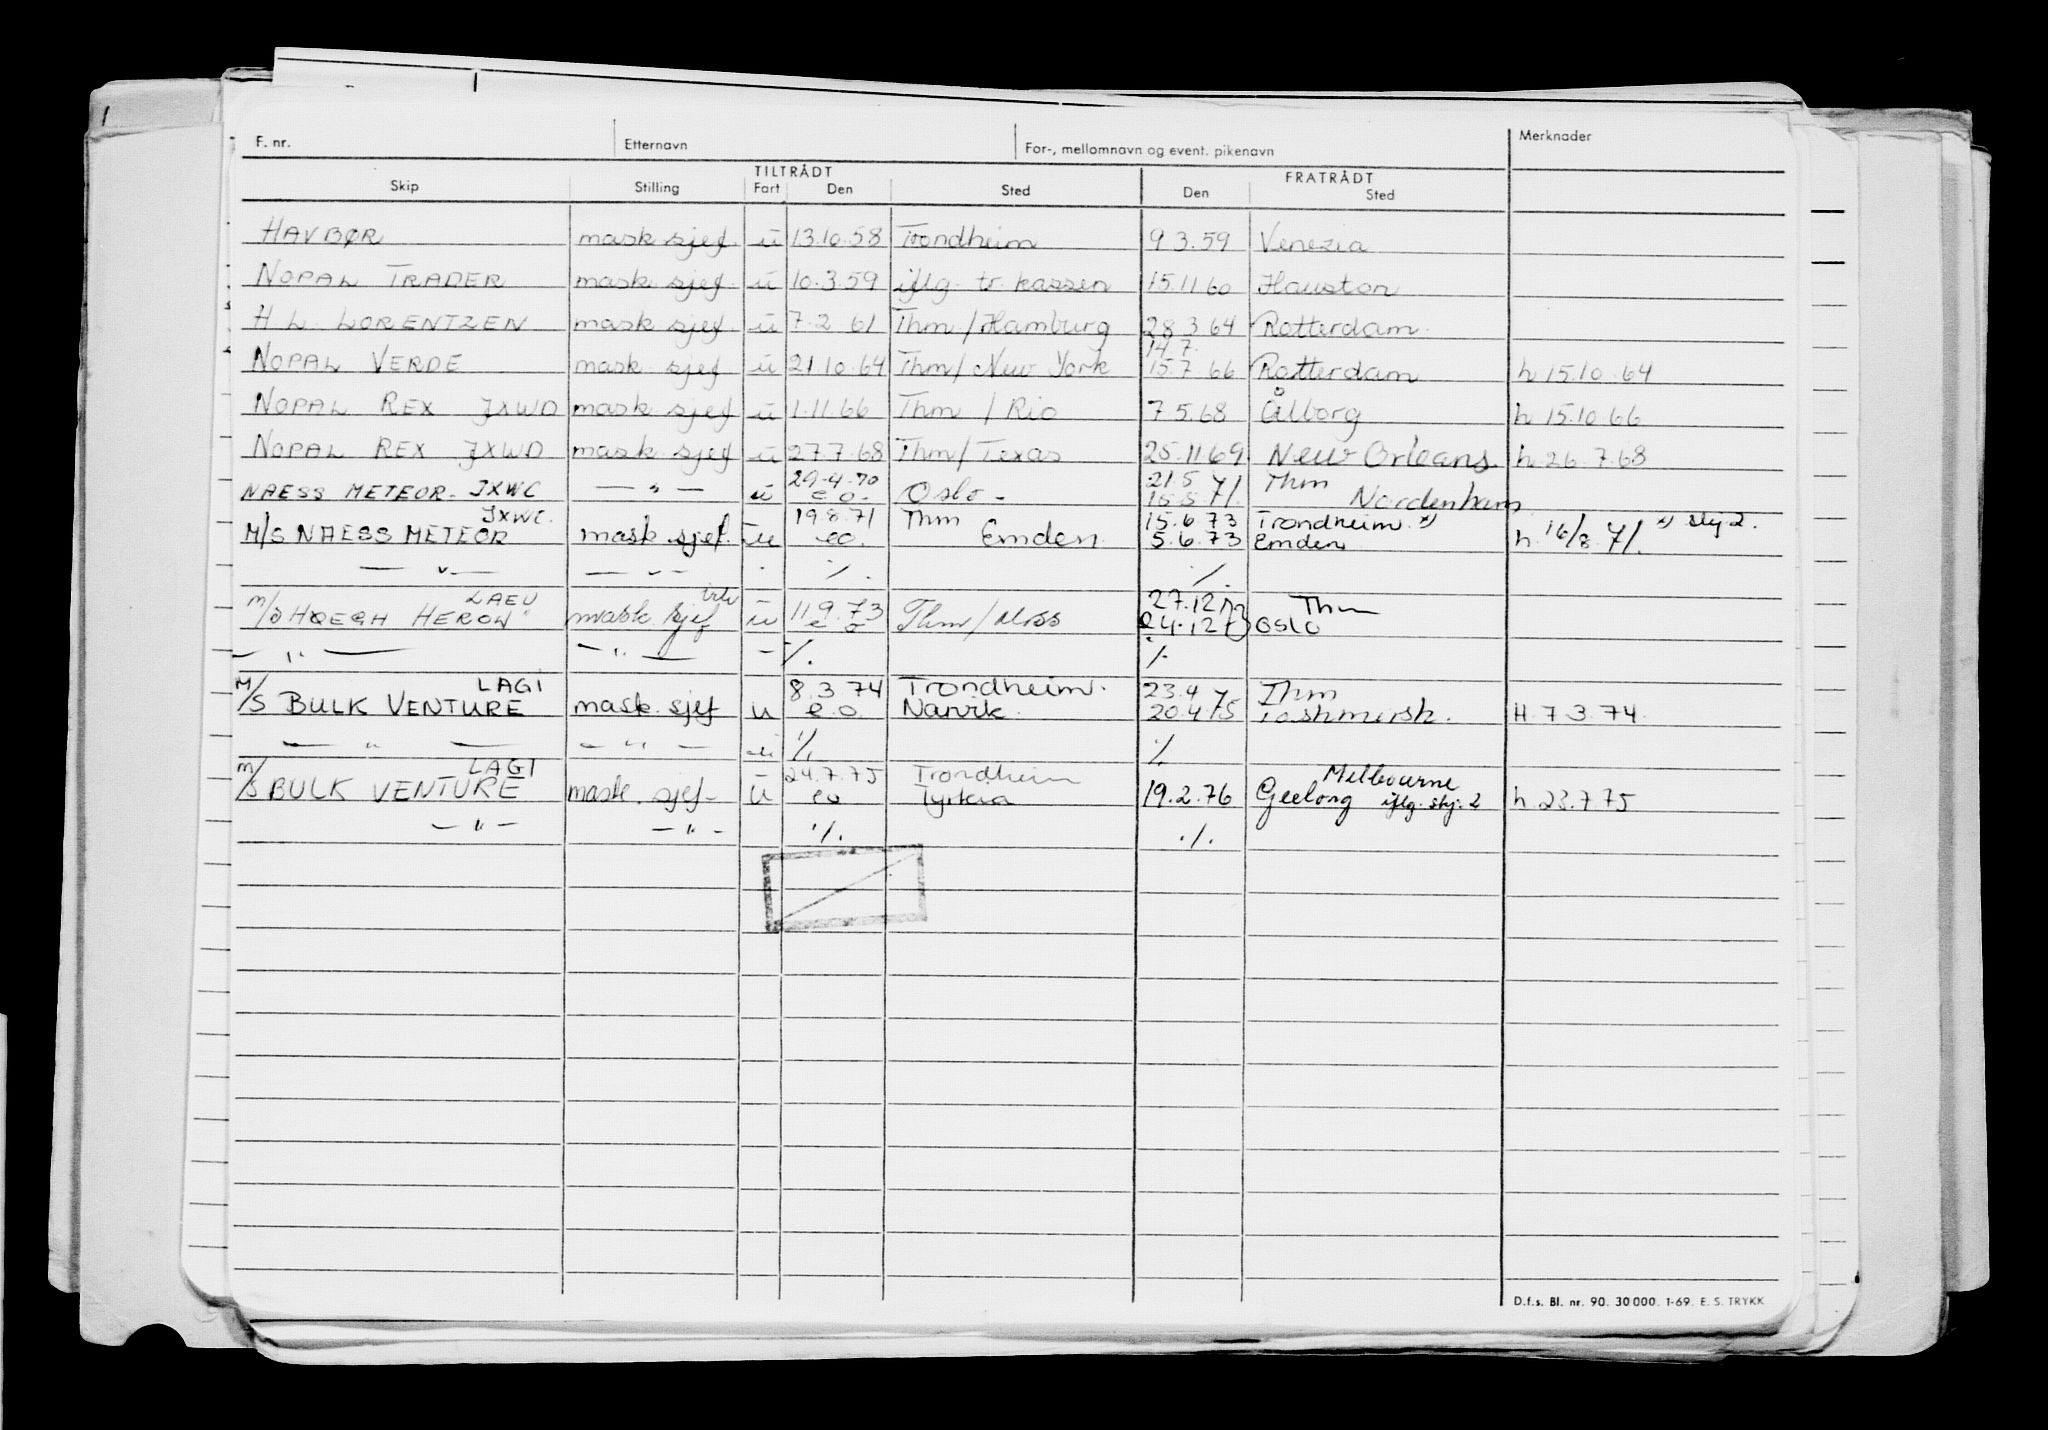 F. nr. Etternavn For-, mellomnavn og event. pikenavn Merknader
TILTRÅDT FRATRÅDT
Skip Stilling Fart Den Sted Den Sted
HAVBØR mask sjef. u 13.10.58 Trondheim 9 3.59 Venezia
NOPAL TRADER mask. sjef. u 10.3.59 iflg. tr. kassen 15.11 60 Houston
H L. LORENTZEN mask sjef u 7.2 61 Thm / Hamburg 28 3 64 Rotterdam.
14 7.
NOPAL VERDE mask. sjef u 21.10.64 Thm / New York 15.7 66 Rotterdam h 15.10.64
NOPAL REX JXWD mask sjef u 1.11.66 Thm / Rio 7 5.68 Ålborg h 15.10 66
NOPAL REX JXWD mask. sjef u 27.7.68 Thm / Texas 25.11 69 New Orleans h 26.7.68
29-4-70 21 5 71. Thm
NAESS METEOR - JXWC — " — u e o. Oslo - 15.5 Nordenham
JXWC. 19.8.71 Thm 15.6.73 Trondheim. x)
M/S NAESS METEOR mask. sjef. u eo. Emden. 5.6.73 Emden h. 16/8.71. x) skj 2.
— " — — " — ./. ./.
LAEU vik 11 9.73 27.12 73 Thm
M/S HØEGH HERON mask. sjef u e o Thm / Moss 24.12 Oslo
— " — — " — - ./. ./.
LAGI 8.3.74 Trondheim. 23.4 75 Thm
M/S BULK VENTURE mask. sjef u e.o. Narvik. 20.4 H. 7.3.74.
— " — — " — u ./. ./.
LAGI 24.7.75 Trondheim Melbourne
M/S BULK VENTURE mask. sjef - u eo Tyrkia 19.2.76 Geelong iflg. skj. 2 h. 23.7.75
— " — — " — ./. ./.
D.f.s. Bl. nr. 90. 30 000. 1-69. E. S. TRYKK